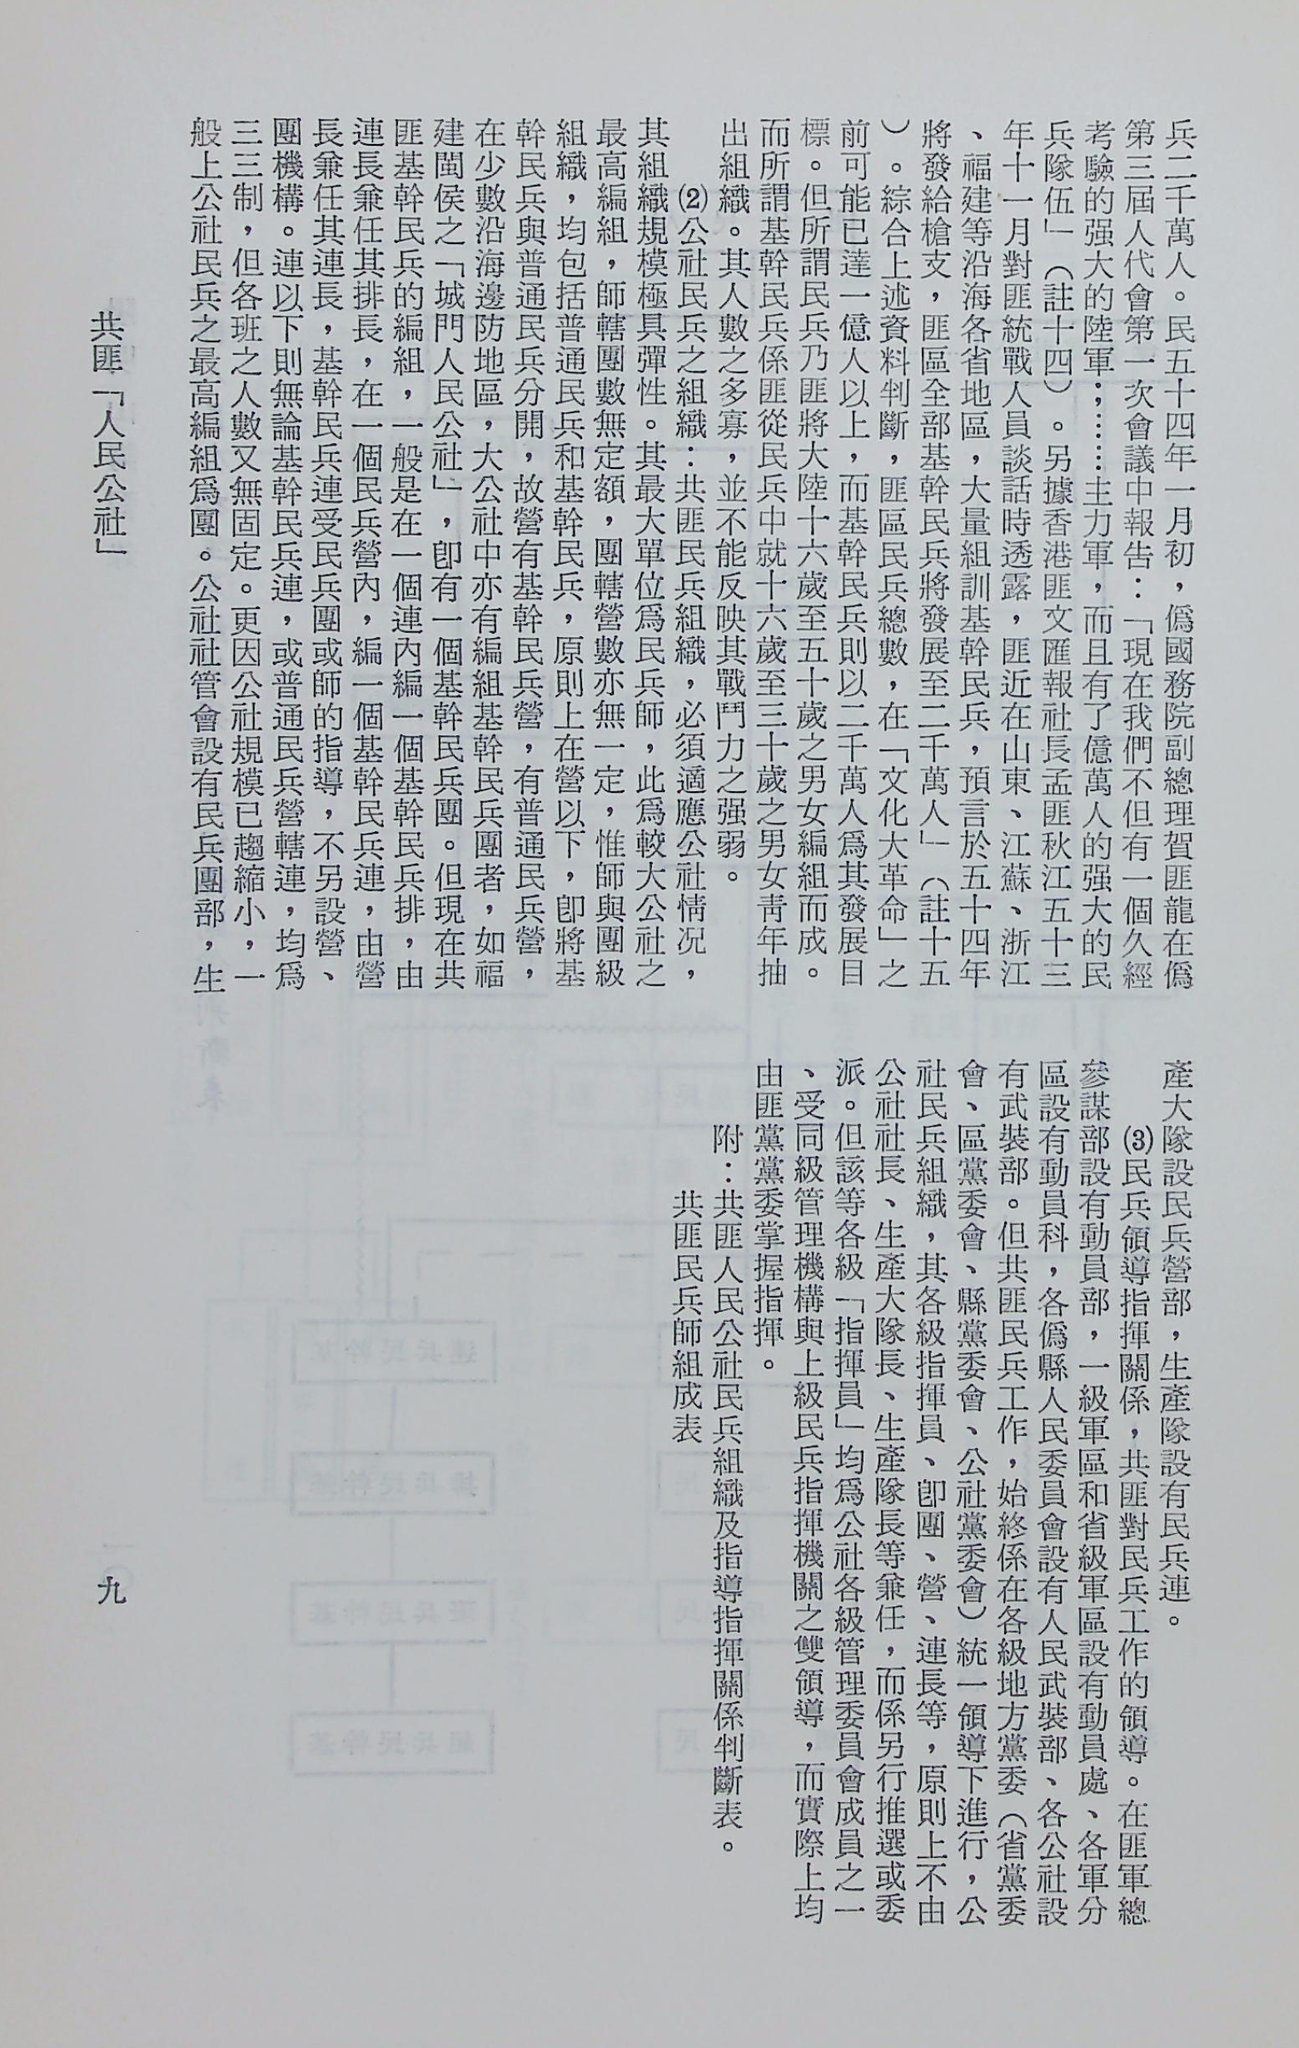 兵二千萬人。民五十四年一月初，僞國務院副總理賀匪龍在僞
第三屆人代會第一次會議中報告：「現在我們不但有一個久經
考驗的强大的陸軍；……主力軍，而且有了億萬人的强大的民
兵隊伍」（註十四）。另據香港匪文匯報社長孟匪秋江五十三
年十一月對匪統戰人員談話時透露，匪近在山東、江蘇、浙江
、福建等沿海各省地區，大量組訓基幹民兵，預言於五十四年
將發給槍支，匪區全部基幹民兵將發展至二千萬人」（註十五
）。綜合上述資料判斷，匪區民兵總數，在「文化大革命」之
前可能已達一億人以上，而基幹民兵則以二千萬人爲其發展目
標。但所謂民兵乃匪將大陸十六歲至五十歲之男女編組而成。
而所謂基幹民兵係匪從民兵中就十六歲至三十歲之男女靑年抽
出組織。其人數之多寡，並不能反映其戰鬥力之强弱。
⑵公社民兵之組織：共匪民兵組織，必須適應公社情况，
其組織規模極具彈性。其最大單位爲民兵師，此爲較大公社之
最高編組，師轄團數無定額，團轄營數亦無一定，惟師與團級
組織，均包括普通民兵和基幹民兵，原則上在營以下，卽將基
幹民兵與普通民兵分開，故營有基幹民兵營，有普通民兵營，
在少數沿海邊防地區，大公社中亦有編組基幹民兵團者，如福
建閩侯之「城門人民公社」，卽有一個基幹民兵團。但現在共
匪基幹民兵的編組，一般是在一個連內編一個基幹民兵排，由
連長兼任其排長，在一個民兵營內，編一個基幹民兵連，由營
長兼任其連長，基幹民兵連受民兵團或師的指導，不另設營、
團機構。連以下則無論基幹民兵連，或普通民兵營轄連，均爲
三三制，但各班之人數又無固定。更因公社規模已趨縮小，一
般上公社民兵之最高編組爲團。公社社管會設有民兵團部，生
產大隊設民兵營部，生產隊設有民兵連。
⑶民兵領導指揮關係，共匪對民兵工作的領導。在匪軍總
參謀部設有動員部，一級軍區和省級軍區設有動員處、各軍分
區設有動員科，各僞縣人民委員會設有人民武裝部、各公社設
有武裝部。但共匪民兵工作，始終係在各級地方黨委（省黨委
會、區黨委會、縣黨委會、公社黨委會）統一領導下進行，公
社民兵組織，其各級指揮員、卽團、營、連長等，原則上不由
公社社長、生產大隊長、生產隊長等兼任，而係另行推選或委
派。但該等各級「指揮員」均爲公社各級管理委員會成員之一
、受同級管理機構與上級民兵指揮機關之雙領導，而實際上均
由匪黨黨委掌握指揮。
附：共匪人民公社民兵組織及指導指揮關係判斷表。
共匪民兵師組成表
共匪「人民公社」
九